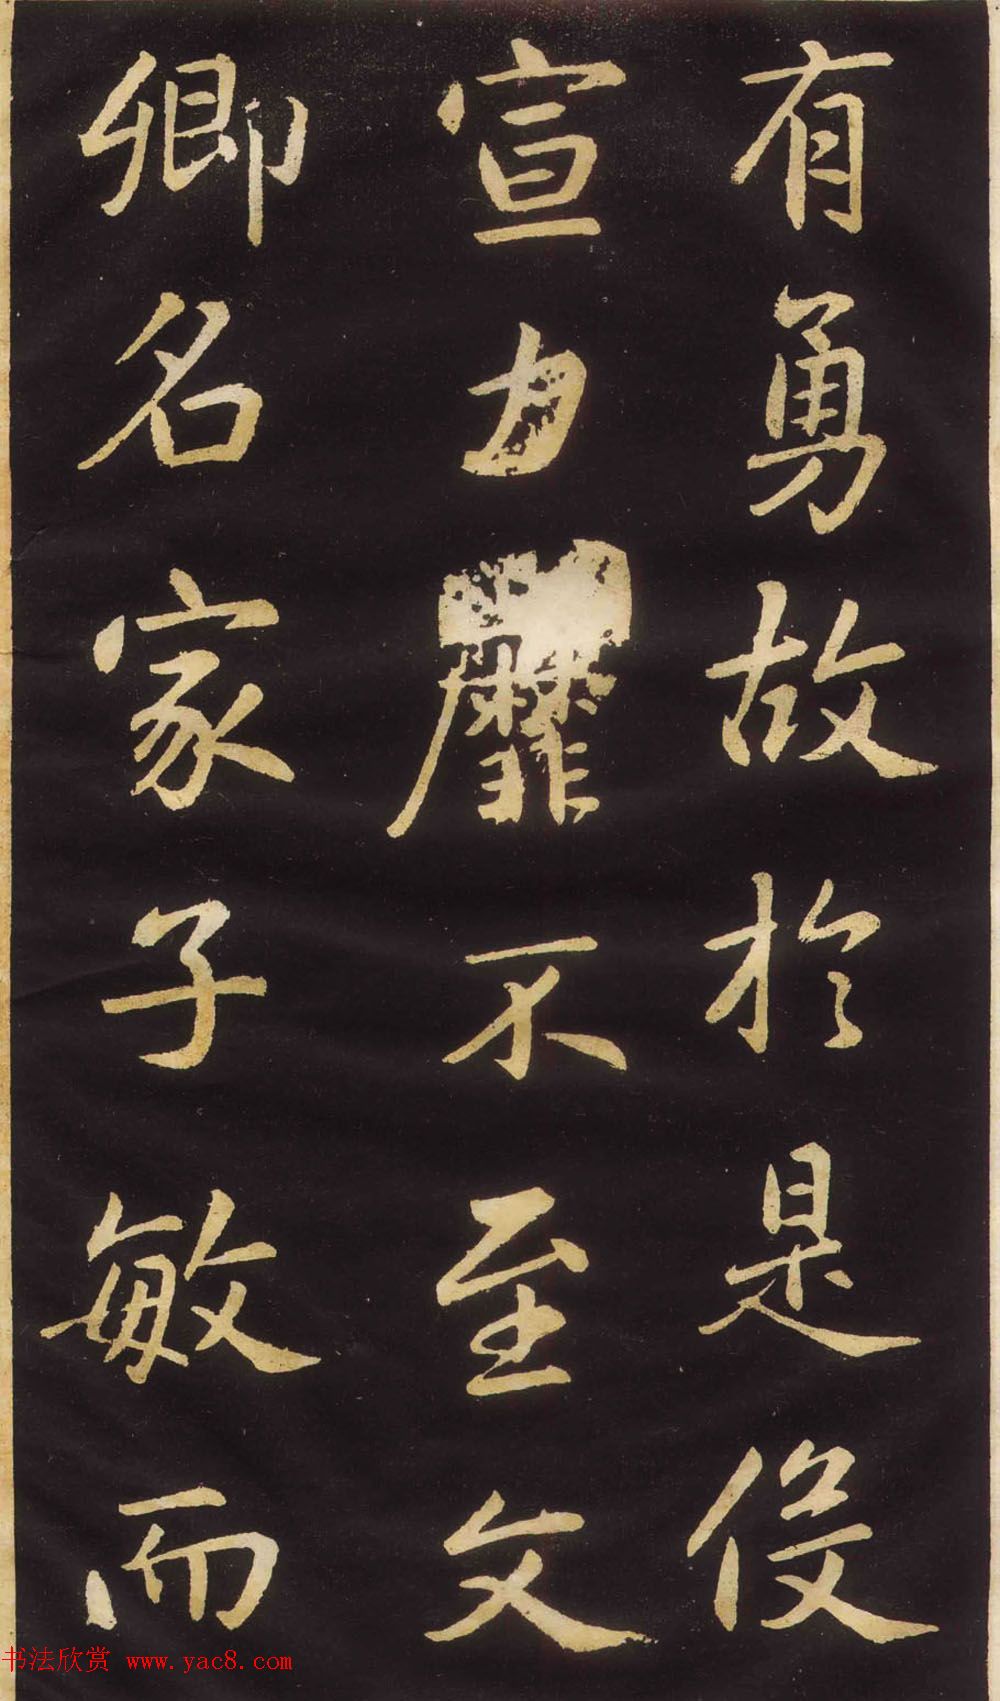 有勇故於是役
宣力靡不至文
卿名家子敏而
书法欣赏 www.yac8.com